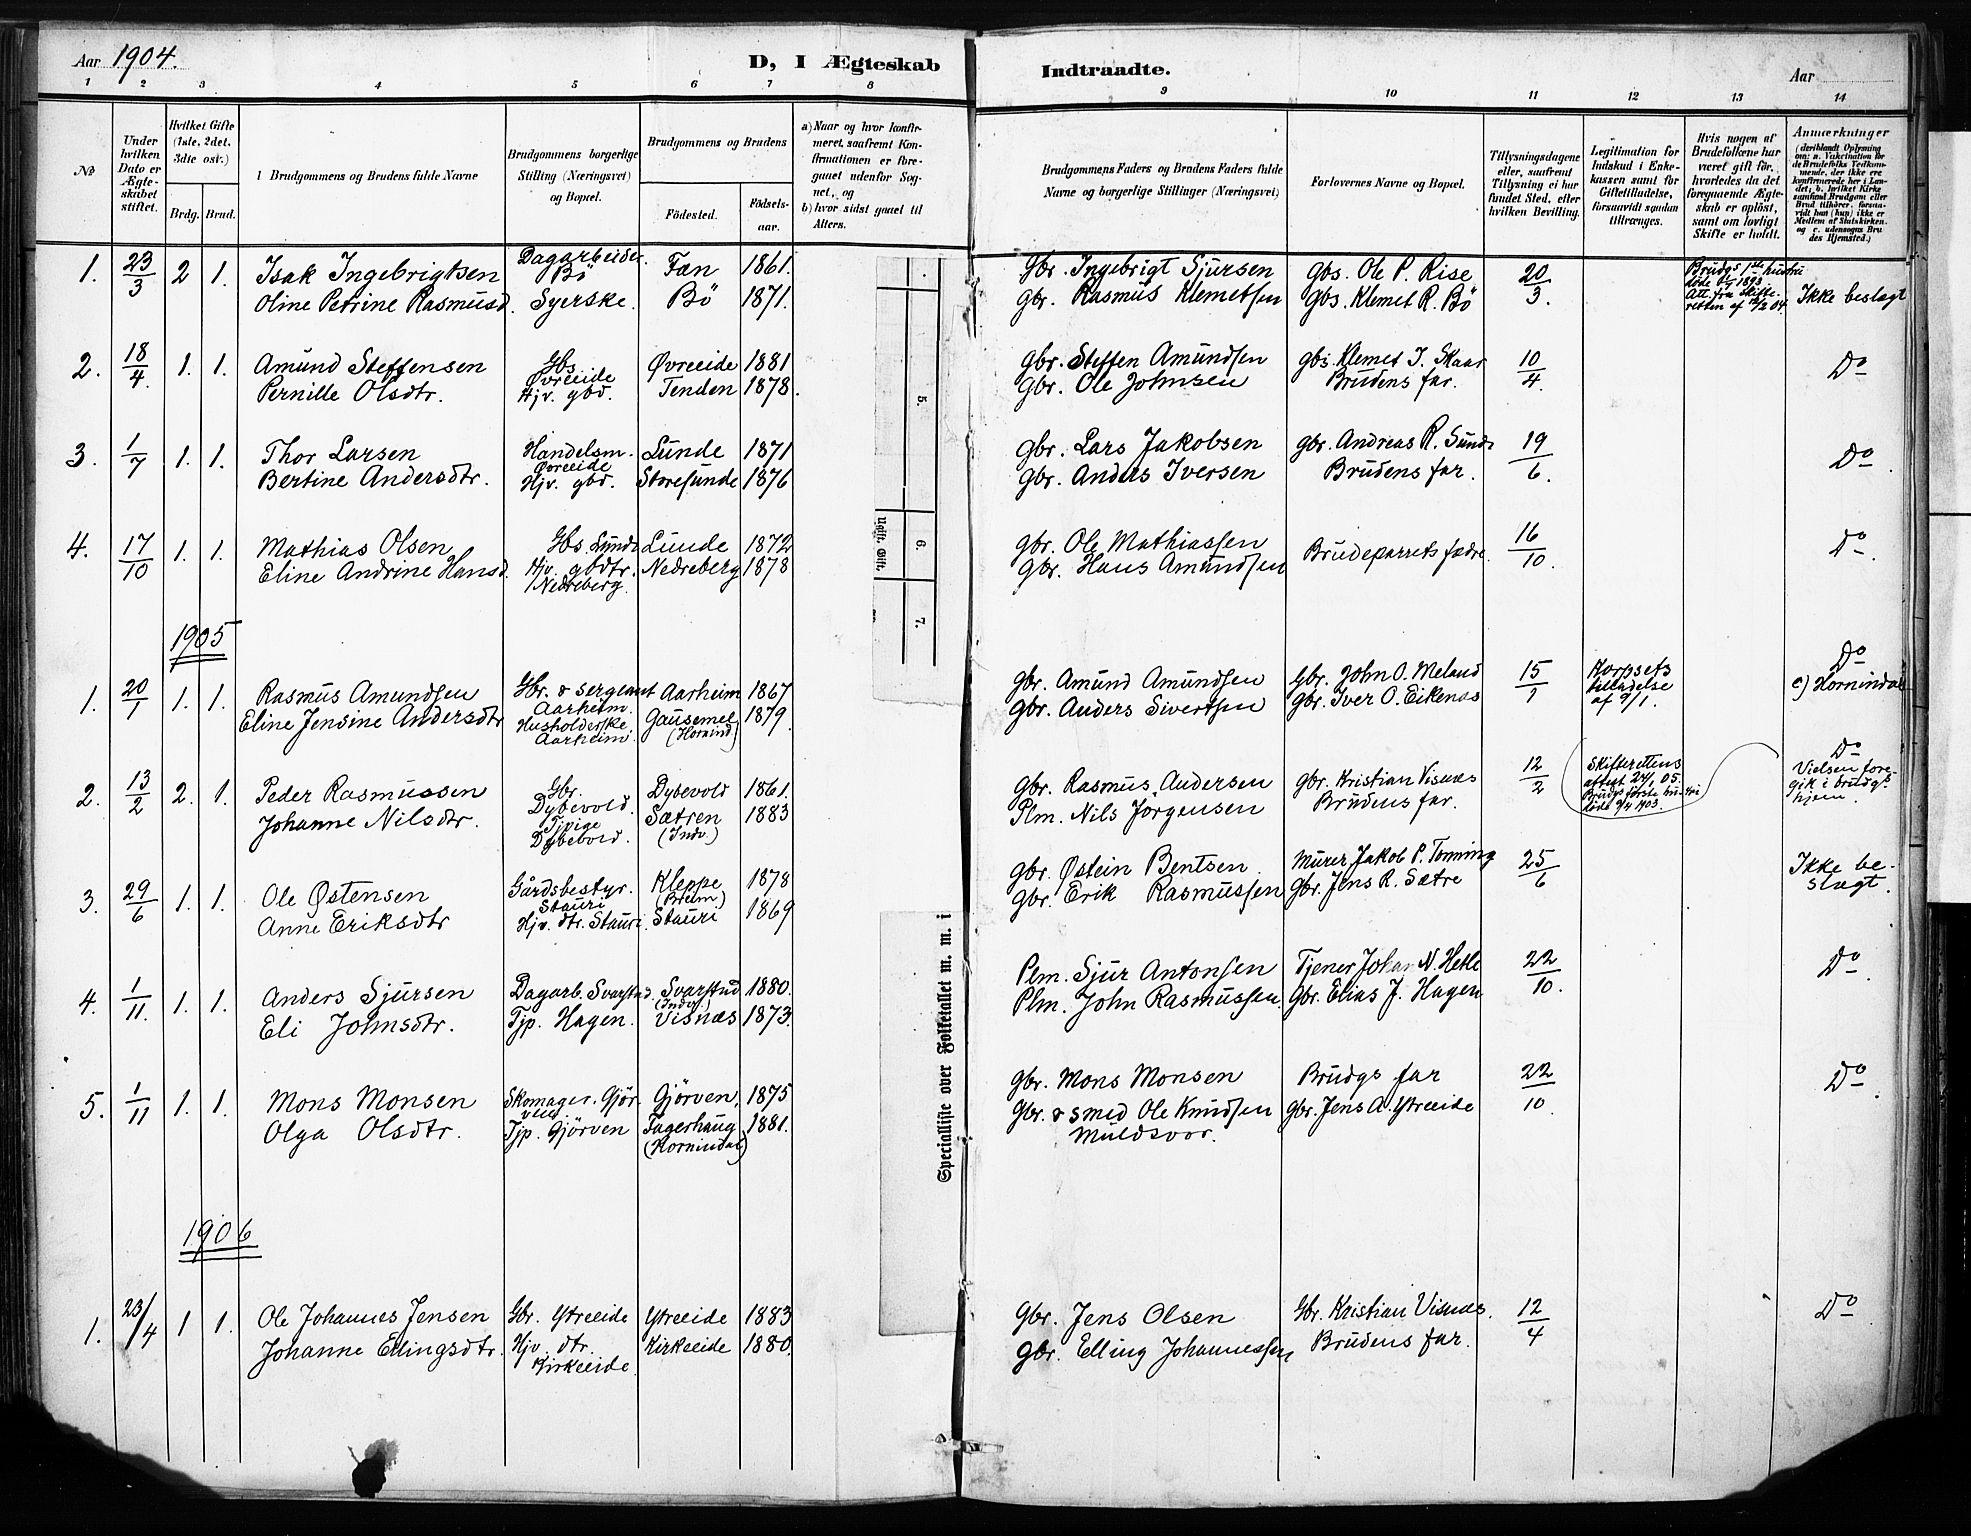 Aar 1904.
D, I Ægteskab Indtraadte.
Aar
1 2 3 4 5 6 7 8 9 10 11 12 13 14
No
Under hvilken Dato er Ægteskabet stiftet.
Hvilket Gifte (1ste, 2det, 3die osv.)
Brdg. Brud.
Brudgommens og Brudens fulde Navne
Brudgommens borgerlige Stilling (Næringsvei) og Bopæl.
Brudgommens og Brudens
Fødested.
Fødselsaar.
a) Naar og hvor konfirmeret, saafremt Konfirmationen er foregaaet udenfor Sognet, og
b) hvor sidst gaaet til Alters.
Brudgommens Faders og Brudens Faders fulde Navne og borgerlige Stillinger (Næringsvei)
Forlovernes Navne og Bopæl.
Tillysningsdagene eller, saafremt Tillysning ei har fundet Sted, efter hvilken Bevilling.
Legitimation for Indskud i Enkekassen samt for Giftetilladelse, forsaavidt saadan tiltrænges.
Hvis nogen af Brudefolkene har været gift før, hvorledes da det foregaaende Ægteskab er opløst, samt om lovligt Skifte er holdt.
Anmærkninger (deriblandt Oplysning om: a. Vaccination for de Brudefolks Vedkommende, der ikke ere konfirmerede her i Landet, b. hvilket Kirkesamfund Brudgom eller Brud tilhører, forsaavidt han (hun) ikke er Medlem af Statskirken, og c. udensogns Brudes Hjemsted.)
1. 23/3 2 1. Isak Ingebrigtsen Dagarbeider. Bö Fan 1861. Gbr. Ingebrigt Sjursen Gbs. Ole P. Rise 20/3. Brudgs 1ste hustru døde 1893 Att. fra Skifteretten af 04. Ikke beslægt
Oline Petrine Rasmusd. Syerske. Bö 1871. Gbr. Rasmus Klemetsen Gbs. Klemet R. Bö
2. 18/4. 1. 1. Amund Steffensen Gbs. Øvreeide Øvreeide 1881 Gbr. Steffen Amundsen gbs. Klemet J. Skaar 10/4. Do
Pernille Olsdtr. Hjv. gbd. Tenden 1878. Gbr. Ole Johnsen Brudens far.
3. 1/7 1. 1. Thor Larsen Handelsm. Øvreeide Lunde 1871 Gbr. Lars Jakobsen gbr. Andreas R. Sunde 19/6. Do
Bertine Andersdtr. Hjv. gbd. Storesunde 1876 Gbr. Anders Iversen Brudens far.
4. 17/10 1. 1. Mathias Olsen Gbs. Lunde Lunde 1872 Gbr. Ole Mathiassen Brudeparrets fædre. 16/10. Do.
Eline Andrine Hansd. Hjv. gbdtr. Nedreberg. Nedreberg 1878 Gbr. Hans Amundsen
1905
1. 20/1 1. 1. Rasmus Amundsen Gbr. & sergeant Aarheim. Aarheim 1867 Gbr. Amund Amundsen Gbr. John O. Meland 15/1 Korpsets tilladelse af 9/1. Do c) Hornindal
Eline Jensine Andersdtr Husholderske. Aarheim. Gausemel (Hornind) 1879. Gbr. Anders Sivertsen Gbr. Iver O. Eikenæs
2. 13/2 2. 1. Peder Rasmussen Gbr. Dybevold. Dybevold 1861. Gbr. Rasmus Andersen gbr. Kristian Visnæs 12/2 Skifterettens attest 24/1 05. Brudgs første hustru døde 9/4 1903. Do Vielsen foregik i brudgs hjem.
Johanne Nilsdtr. Tjpige Dybevold. Sætren (Indv.) 1883 Plm. Nils Jørgensen Brudens far.
3. 29/6 1. 1. Ole Østensen Gårdsbestyr. Stauri Kleppe (Breim) 1878 Gbr. Østein Bentsen Murer Jakob P. Tonning 25/6 Ikke beslægt.
Anne Eriksdtr Hjv. dtr. Stauri. Stauri 1869 Gbr. Erik Rasmussen Gbr. Jens R. Sætre
4. 1/11. 1. 1. Anders Sjursen Dagarb. Svarstad. Svarstad (Indv.) 1880. Plm. Sjur Antonsen Tjener Johan N. Hetle 22/10. Do
Eli Johnsdtr. Tjp. Hagen. Visnæs 1873. Plm. John Rasmussen. Gbr. Elias J. Hagen
5. 1/11 1. 1. Mons Monsen Skomager. Gjörven Gjörven. 1875 Gbr. Mons Monsen Brudgs far 22/10. Do
Olga Olsdtr. Tjp. Gjörven Fagerhaug (Hornindal) 1881. Gbr. & smed Ole Knudsen Muldsvor. gbr. Jens A. Ytreeide
1906
1. 23/4 1 1. Ole Johannes Jensen Gbr. Ytreeide Ytreeide 1883 Gbr. Jens Olsen Gbr. Kristian Visnæs. 12/4 Do
Johanne Ellingsdtr. Hjv. dtr. Kirkeeide Kirkeeide 1880. Gbr. Elling Johannessen Brudens far.
5.
6.
7.
Ugift. Gift.
Specialliste over Folketallet m. m. i